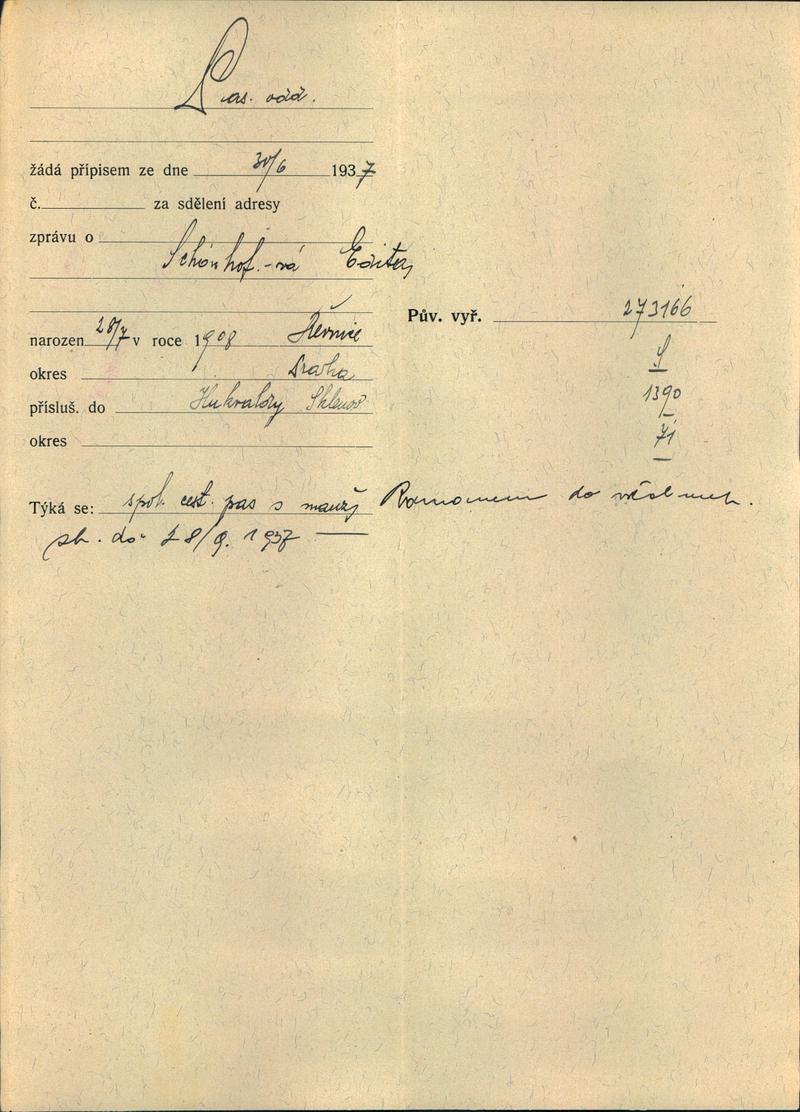 Pas. odd.
žádá přípisem ze dne 30/6 1937
č. za sdělení adresy
zprávu o
Schönhof.-vá Edita,
narozen 28/7 v roce 1908 Řevnice
okres Praha
přísluš. do Hukvaldy Sklenov
okres
Pův. vyř. 273166
S
1390
71
Týká se: spol. cest. pas s manž. Romanem do všech
do 28/9. 1937